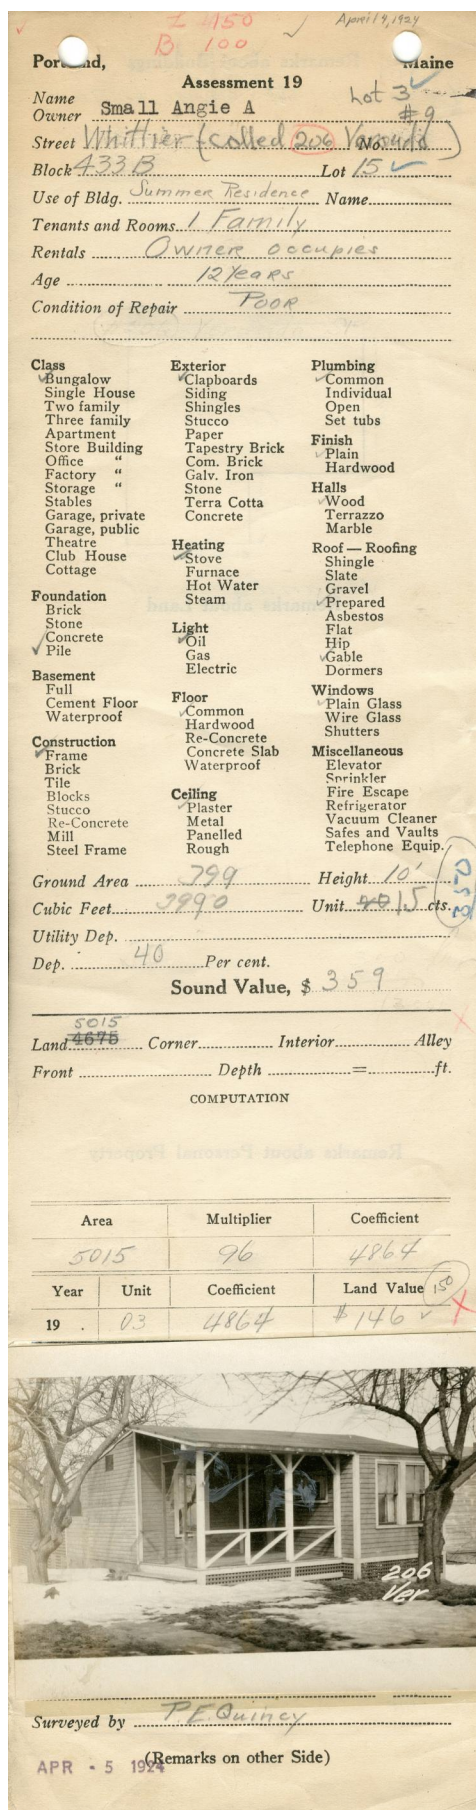 L 450
B 100
April 9, 1924
Portland, Maine
Assessment 19
Lot 3
#9
Name
Owner Small Angie A
Street Whittier (called 206 No.
Block 433 B Lot 15
Use of Bldg. Summer Residence Name
Tenants and Rooms 1 Family
Rentals Owner occupies
Age 12 Years
Condition of Repair Poor
Class
Bungalow
Single House
Two family
Three family
Apartment
Store Building
Office "
Factory "
Storage "
Stables
Garage, private
Garage, public
Theatre
Club House
Cottage
Foundation
Brick
Stone
Concrete
Pile
Basement
Full
Cement Floor
Waterproof
Construction
Frame
Brick
Tile
Blocks
Stucco
Re-Concrete
Mill
Steel Frame
Exterior
Clapboards
Siding
Shingles
Stucco
Paper
Tapestry Brick
Com. Brick
Galv. Iron
Stone
Terra Cotta
Concrete
Heating
Stove
Furnace
Hot Water
Steam
Light
Oil
Gas
Electric
Floor
Common
Hardwood
Re-Concrete
Concrete Slab
Waterproof
Ceiling
Plaster
Metal
Panelled
Rough
Plumbing
Common
Individual
Open
Set tubs
Finish
Plain
Hardwood
Halls
Wood
Terrazzo
Marble
Roof — Roofing
Shingle
Slate
Gravel
Prepared
Asbestos
Flat
Hip
Gable
Dormers
Windows
Plain Glass
Wire Glass
Shutters
Miscellaneous
Elevator
Sprinkler
Fire Escape
Refrigerator
Vacuum Cleaner
Safes and Vaults
Telephone Equip.
Ground Area 399 Height 10'
Cubic Feet 3990 Unit 15 cts.
Utility Dep.
Dep. 40 Per cent.
Sound Value, $ 359
5015
Land 4675 Corner Interior Alley
Front Depth = ft.
COMPUTATION
Area Multiplier Coefficient
5015 96 4864
Year Unit Coefficient Land Value 150
19 . 03 4864 $146
206
Ver
Surveyed by P.E. Quincy
(Remarks on other Side)
APR - 5 1924